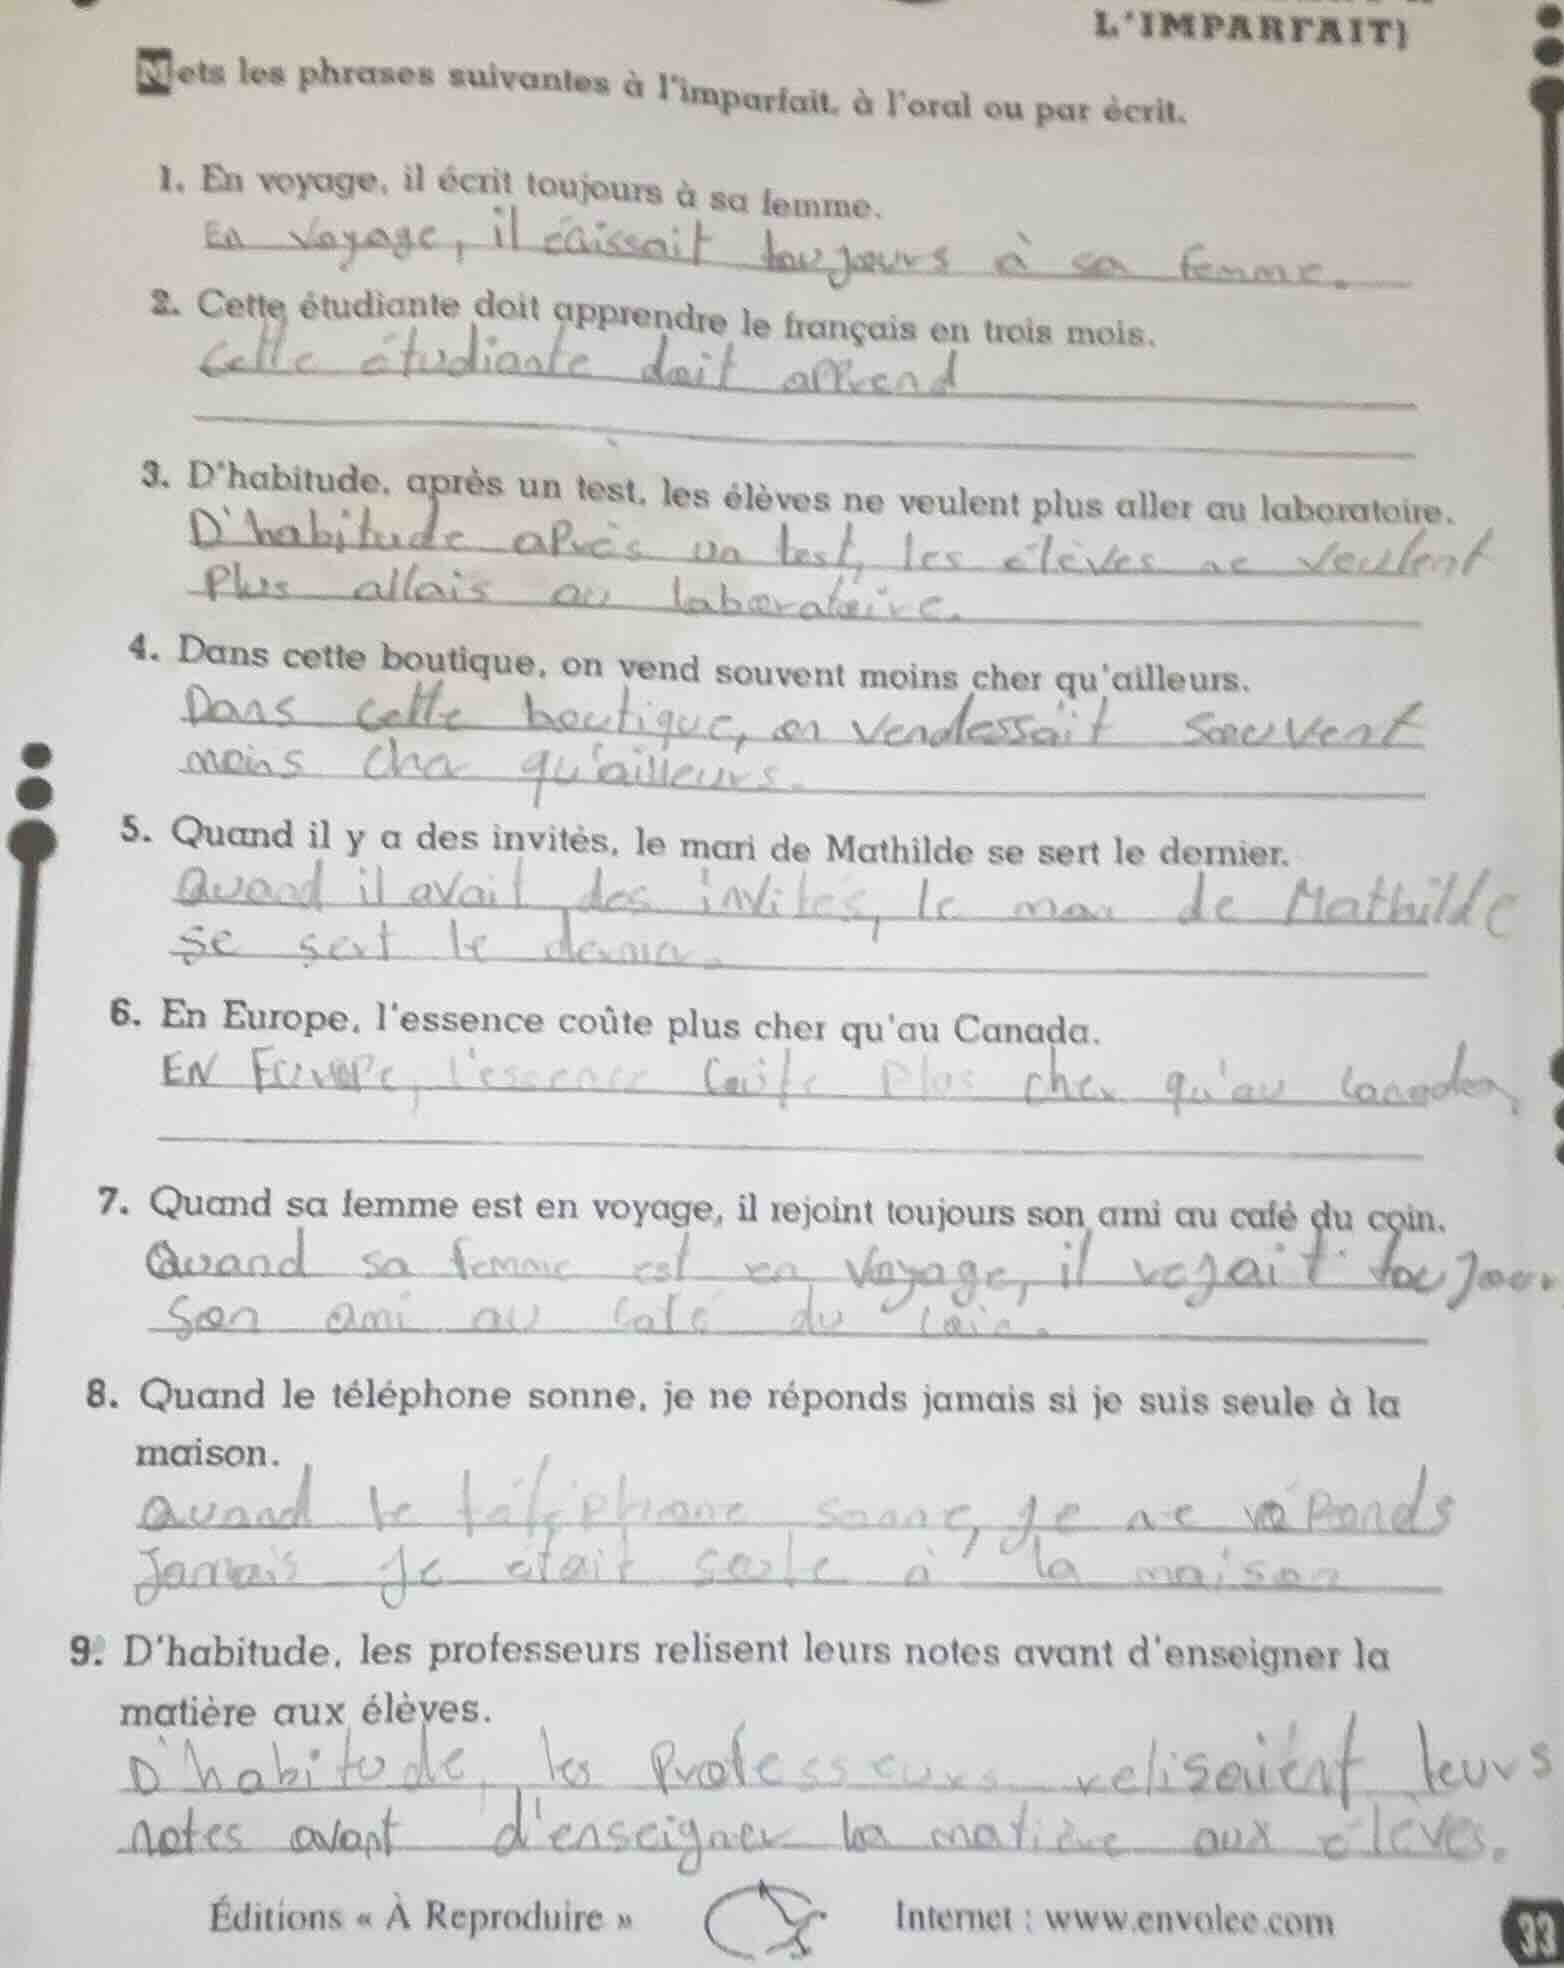 L'IMPARFAIT)
Mets les phrases suivantes à l'imparfait, à l'oral ou par écrit.
1. En voyage, il écrit toujours à sa femme.
En voyage, il écaissait toujours à sa femme.
2. Cette étudiante doit apprendre le français en trois mois.
Cette étudiante doit apprend
3. D'habitude, après un test, les élèves ne veulent plus aller au laboratoire.
D'habitude après un test, les élèves ne veulent
Plus allais au laboratoire.
4. Dans cette boutique, on vend souvent moins cher qu'ailleurs.
Dans cette boutique, on vendessait souvent
moins cher qu'ailleurs.
5. Quand il y a des invités, le mari de Mathilde se sert le dernier.
Quand il avait des invités, le de Mathilde
se sert le
6. En Europe, l'essence coûte plus cher qu'au Canada.
EN Europe, l'essence plus cher qu'au
7. Quand sa femme est en voyage, il rejoint toujours son ami au café du coin.
Quand sa femme est en voyage, il rejait
son ami au café du coin.
8. Quand le téléphone sonne, je ne réponds jamais si je suis seule à la
maison.
Quand le sonne, je ne réponds
Jamais je était à la maison
9. D'habitude, les professeurs relisent leurs notes avant d'enseigner la
matière aux élèves.
D'habitude, les Professeurs relisaient leurs
notes avant d'enseigner la matière aux élèves.
Éditions « À Reproduire »
Internet : www.envolee.com
33